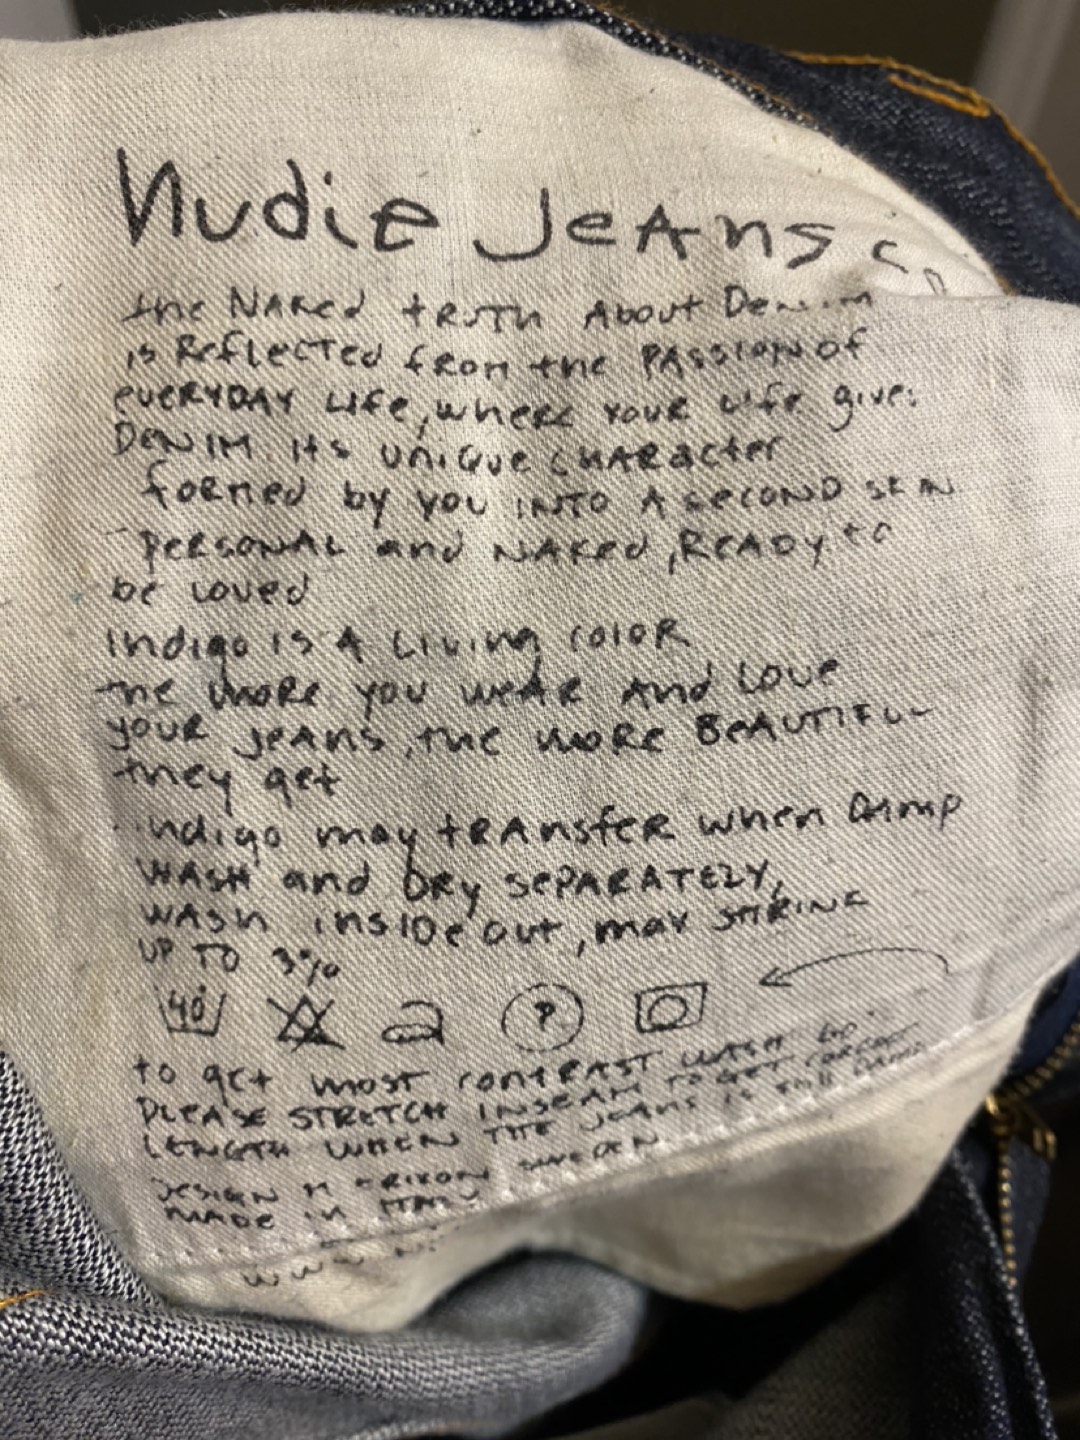 Nudie Jeans Co
the NAKed tRuTh About Denim
is ReflecTed from the PAssion of
eveRyDAY Life, where YouR Life gives
DeNIM. its unique CHARacter
formed by you INTO A seCOND SKIN
PeRSONAL and NAKed, ReADy to
be Loved
Indigo IS A Living coloR
the moRe you weAR And Love
youR jeAns, the moRe BeAUTIFULL
they get
Indigo may tRAnsfeR when DAmp
WASH and DRy SePARATELY,
WASh insIDe out, may SHRINK
UP TO 3%
40° P
to get most contRAST WASH 60°
PLEASE STRETCH INSEAM TO GET CORRECT
LENGTH WHEN THE JEANS IS STILL DAMP
DESIGN M ERIXON SWEDEN
MADE in ITALY
www.